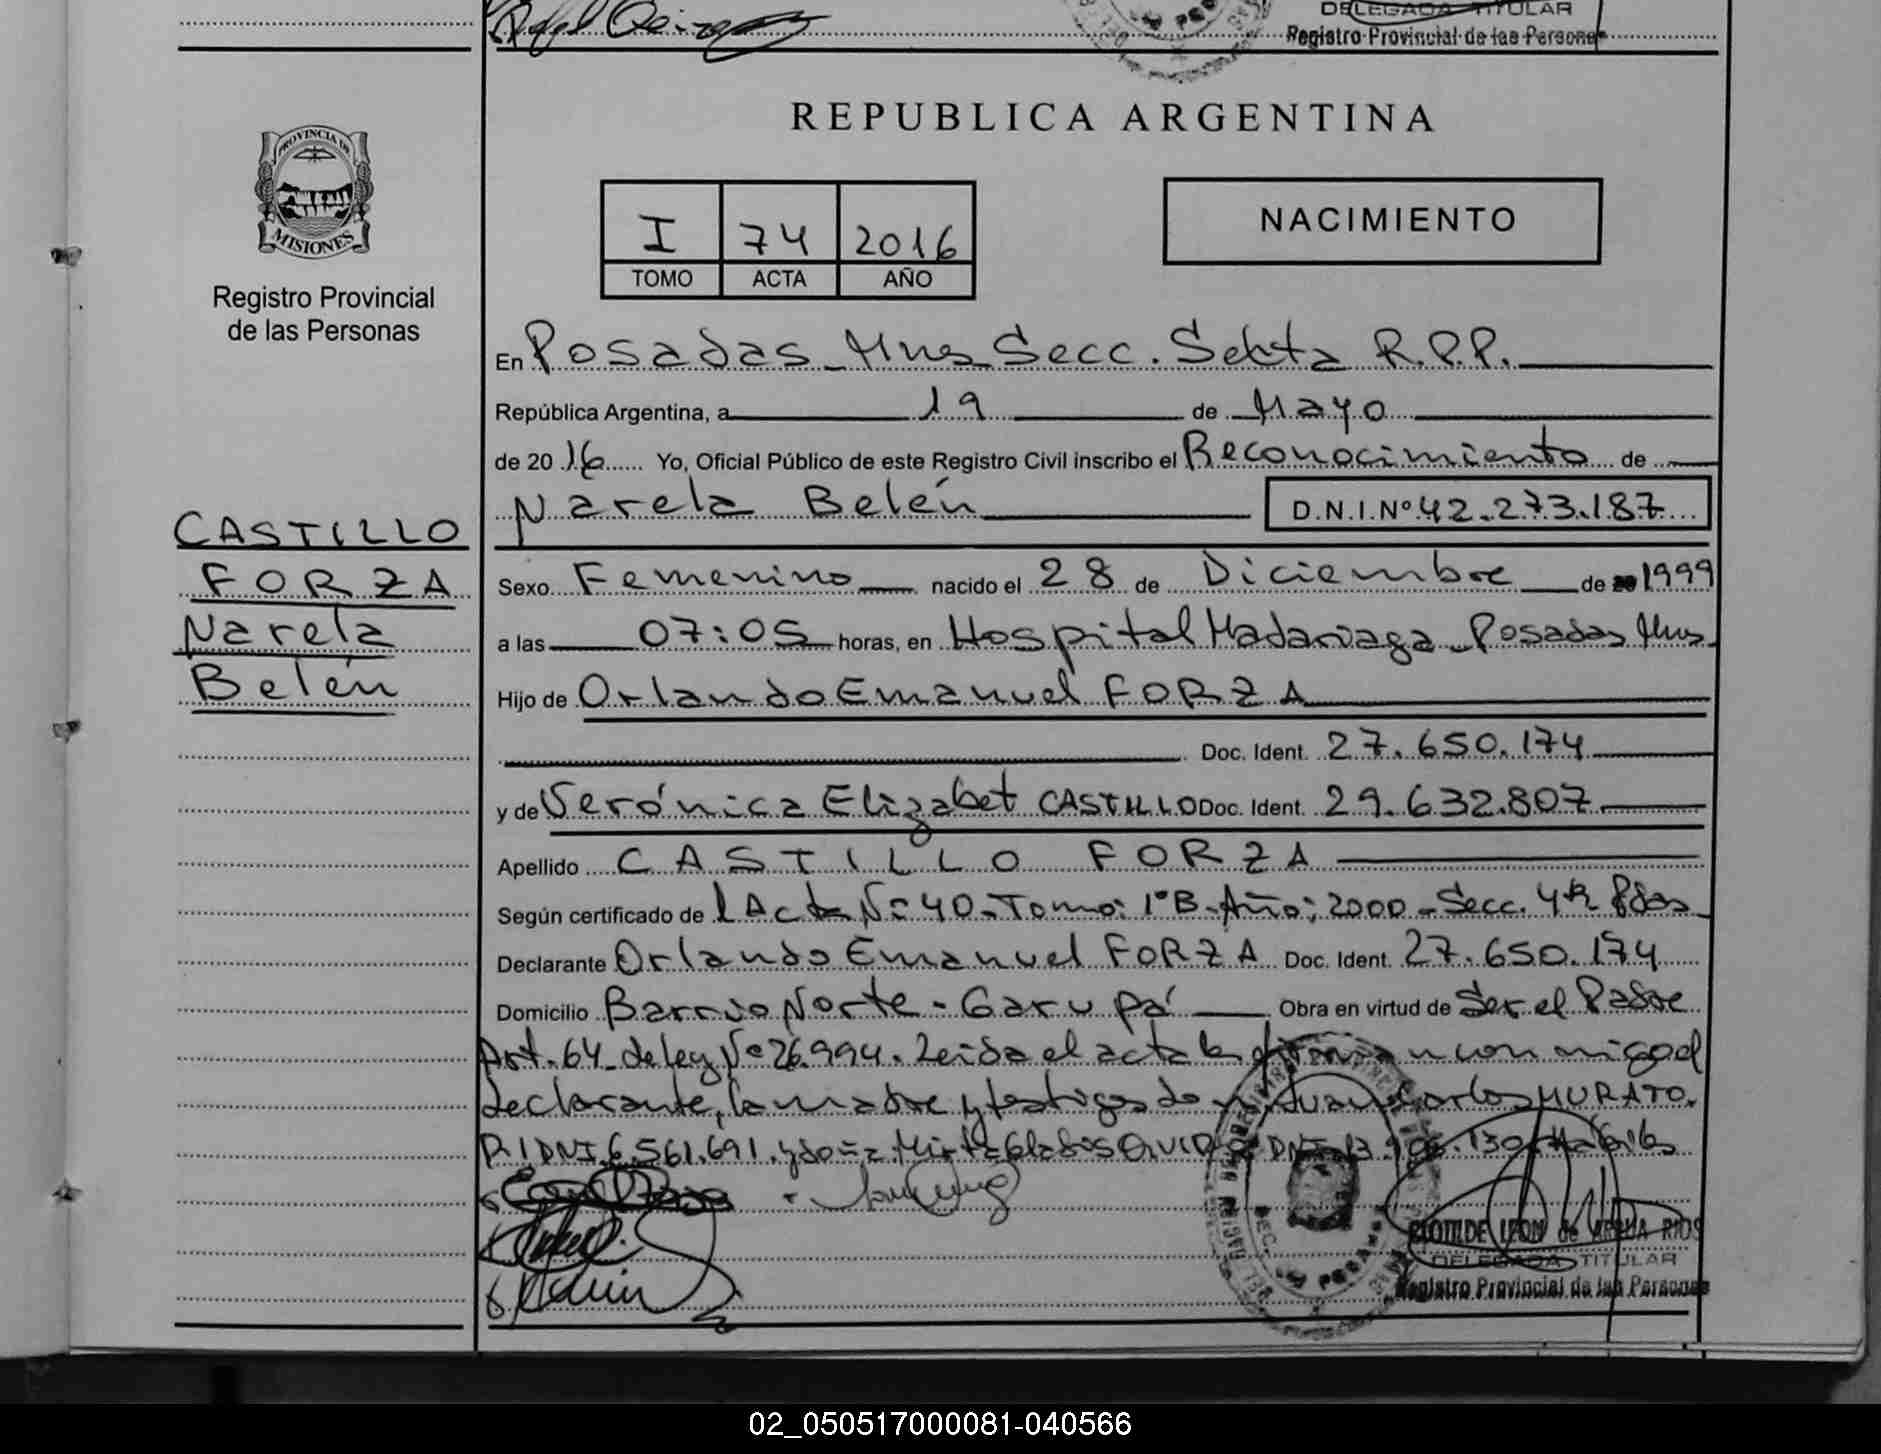 DELEGADA TITULAR
Registro Provincial de las Persona
REPUBLICA ARGENTINA
PROVINCIA DE
MISIONES
Registro Provincial
de las Personas
I 74 2016
TOMO ACTA AÑO
NACIMIENTO
En Posadas Mnes Secc. Sexta R.P.P.
República Argentina, a 19 de Mayo
de 20 16 Yo, Oficial Público de este Registro Civil inscribo el Reconocimiento de
Narela Belén D.N.I.Nº 42.273.187
CASTILLO
FORZA
Narela
Belén
Sexo Femenino nacido el 28 de Diciembre de 1999
a las 07:05 horas, en Hospital Madariaga Posadas Mnes
Hijo de Orlando Emanuel FORZA
Doc. Ident. 27.650.174
y de Verónica Elizabet CASTILLO Doc. Ident. 29.632.807
Apellido CASTILLO FORZA
Según certificado de l Acta Nº 40 - Tomo: 1ºB - Año: 2000 - Secc. 4ta Pdas
Declarante Orlando Emanuel FORZA Doc. Ident. 27.650.174
Domicilio Barrio Norte - Garupá Obra en virtud de Ser el Padre
Art. 64 de ley Nº 26.994. Leida el acta la firman conmigo el
declarante, la madre y testigos don Juan Carlos MURATO.
DNI 6.561.691. y doña Mirta Gladis DNI 13. 130 Habiles
CLOTILDE LEON de RIOS
DELEGADA TITULAR
Registro Provincial de las Persona
02_050517000081-040566